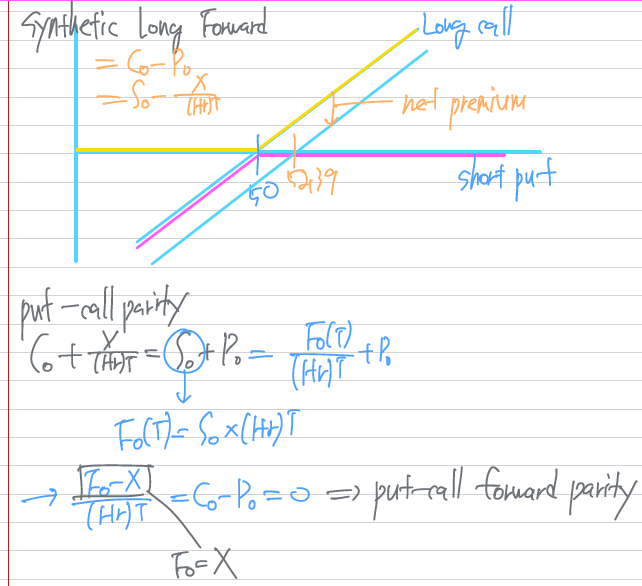 Synthetic Long Forward
= C₀ - P₀
= S₀ - X/(1+r)^T
Long call
net premium
50
52.39
short put
put-call parity
C₀ + X/(1+r)^T = S₀ + P₀ = F₀(T)/(1+r)^T + P₀
F₀(T) = S₀ × (1+r)^T
→ F₀-X/(1+r)^T = C₀ - P₀ = 0 ⇒ put-call forward parity
F₀ = X